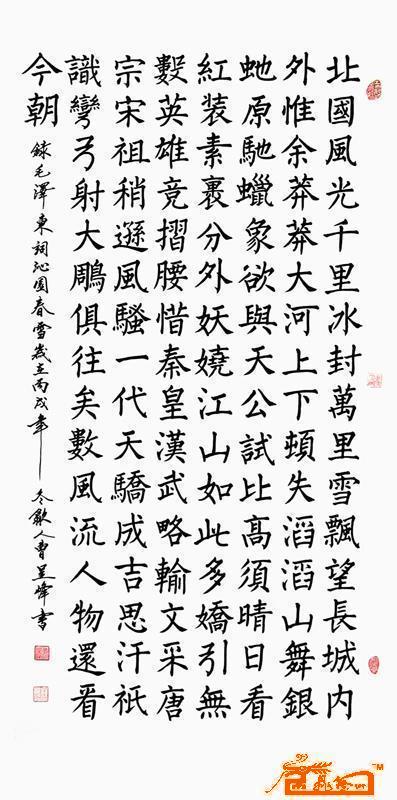 北國風光千里冰封萬里雪飄望長城内
外惟余莽莽大河上下頓失滔滔山舞銀
虵原馳蠟象欲與天公試比高須晴日看
紅装素裹分外妖嬈江山如此多嬌引無
數英雄竞摺腰惜秦皇漢武略輸文采唐
宗宋祖稍遜風騷一代天驕成吉思汗衹
識彎弓射大鵰俱往矣數風流人物還看
今朝
録毛澤東詞沁園春雪歲在丙戌年冬歙人曹峰書